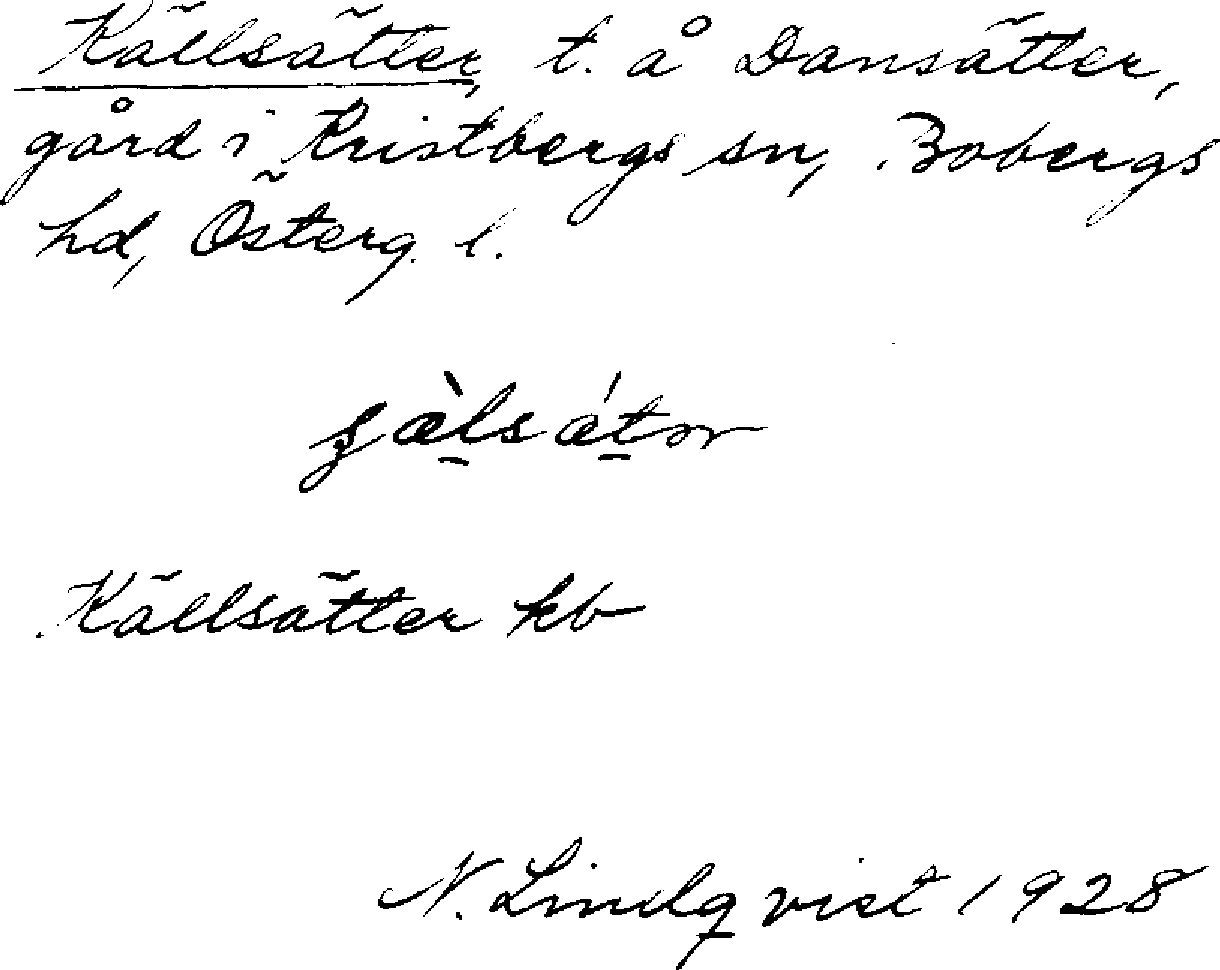 Källsätter, t. å Dansätter,
gård i Kristbergs sn, Bobergs
hd, Österg. l.
Källsätter kb
N. Lindqvist 1928